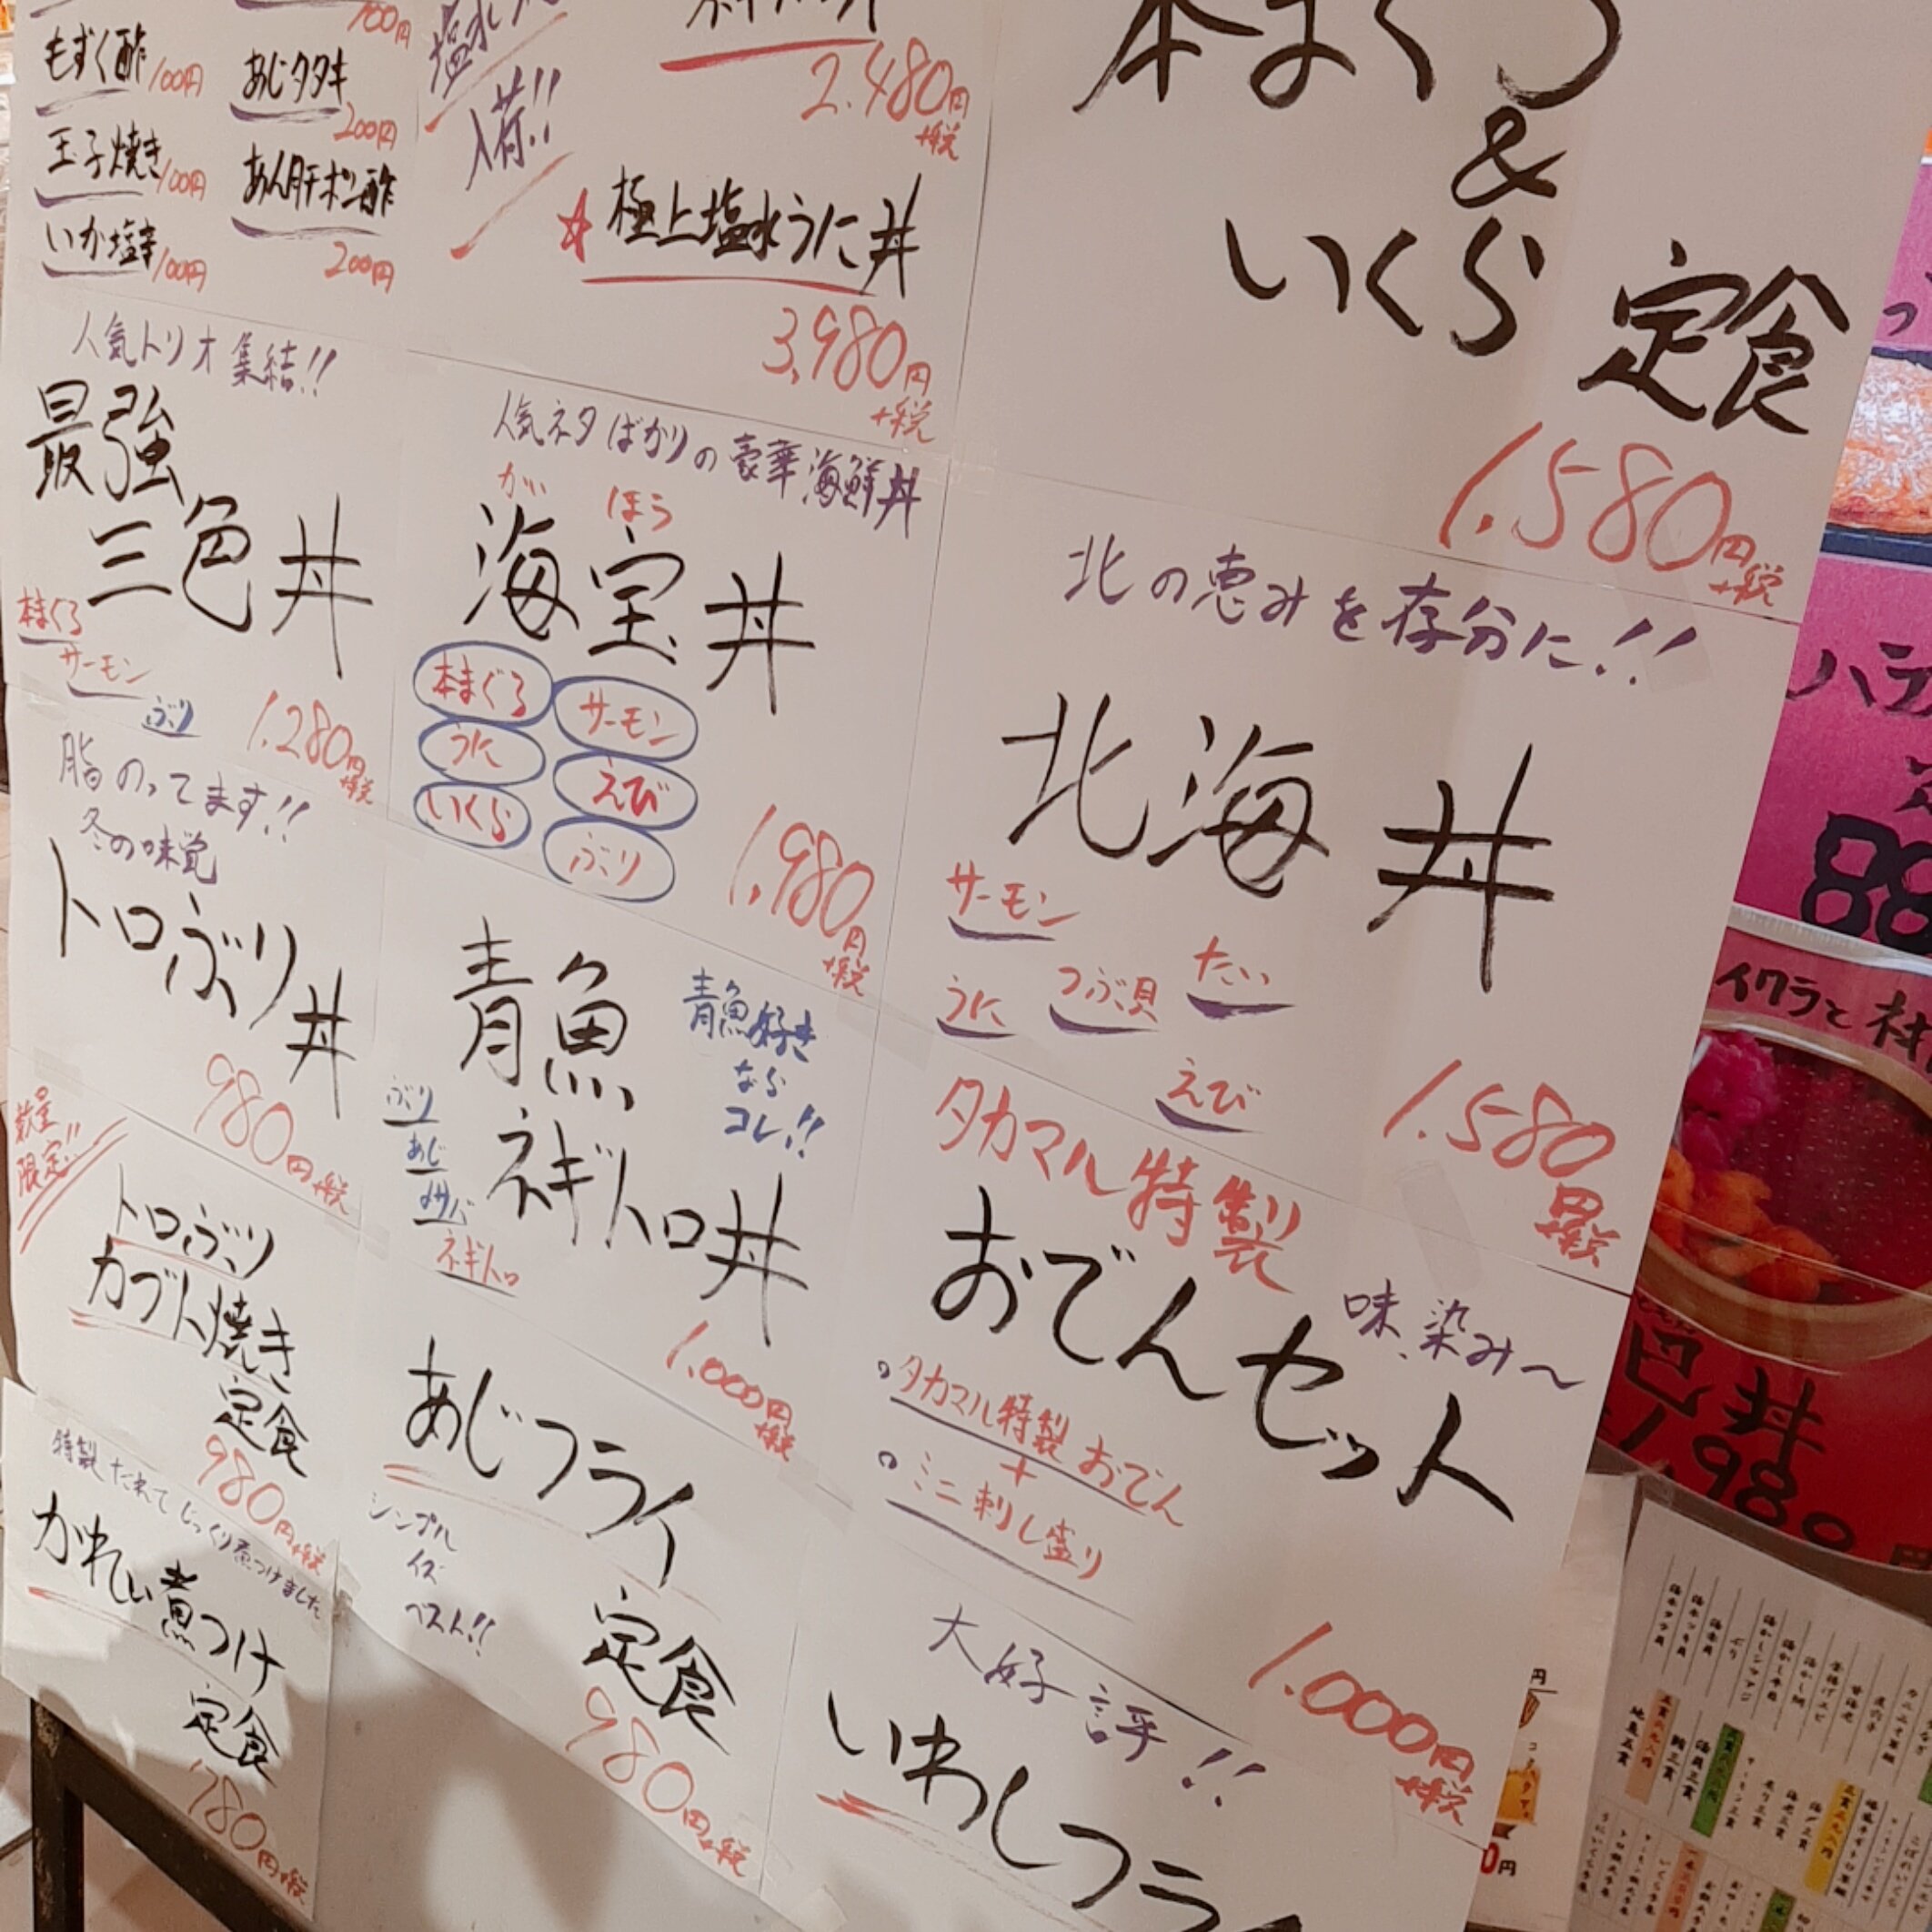 700円
もずく酢 100円
あじタタキ
200円
玉子焼き 100円
あん肝ポン酢
200円
いか塩辛 100円
入荷!!
2.480円
+税
☆極上塩水うに丼
3,980円
+税
本まぐろ
&
いくら定食
1.580円
+税
人気トリオ集結!!
最強
三色丼
本まぐろ
サーモン
ぶり
1.280円
+税
人気ネタばかりの豪華海鮮丼
がい ほう
海宝丼
本まぐろ
サーモン
うに
えび
いくら
ぶり
1,980円
+税
北の恵みを存分に!!
北海丼
サーモン
うに
つぶ貝
たい
えび
1.580円
+税
脂のってます!!
冬の味覚
トロぶり丼
980円+税
青魚
ネギトロ丼
青魚好き
なら
コレ!!
ぶり
あじ
サバ
ネギトロ
1.000円
+税
タカマル特製
おでんセット
味、染み〜
タカマル特製おでん
+
ミニ刺し盛り
1.000円
+税
数量
限定!!
トロぶり
カブト焼き
定食
980円+税
あじフライ
定食
シンプル
イズ
ベスト!!
980円+税
特製たれでじっくり煮つけました
かれい煮つけ
定食
780円+税
大好評!!
いわしフライ
ハラ
イクラと
色丼
1,980円